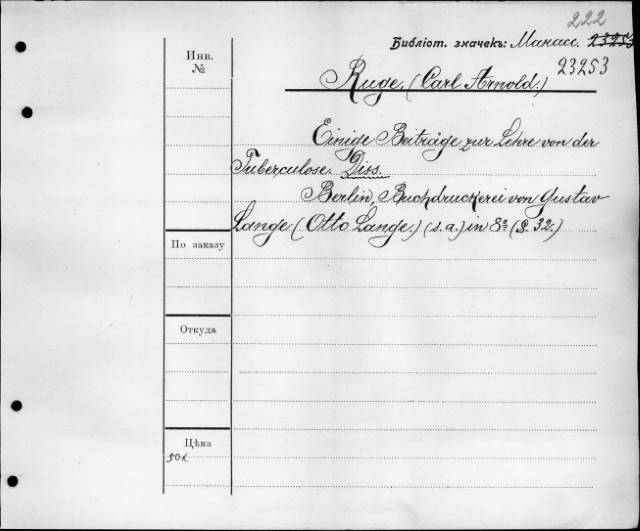 222
Библіот. значекъ: Манасс. 23253
Инв.
№
23253
Ruge. (Carl Arnold.)
Einige Beiträge zur Lehre von der
Tuberculose. Diss.
Berlin, Buchdruckerei von Gustav
Lange. (Otto Lange.) (s. a.) in 8º (S. 32.)
По заказу
Откуда
Цѣна
50к